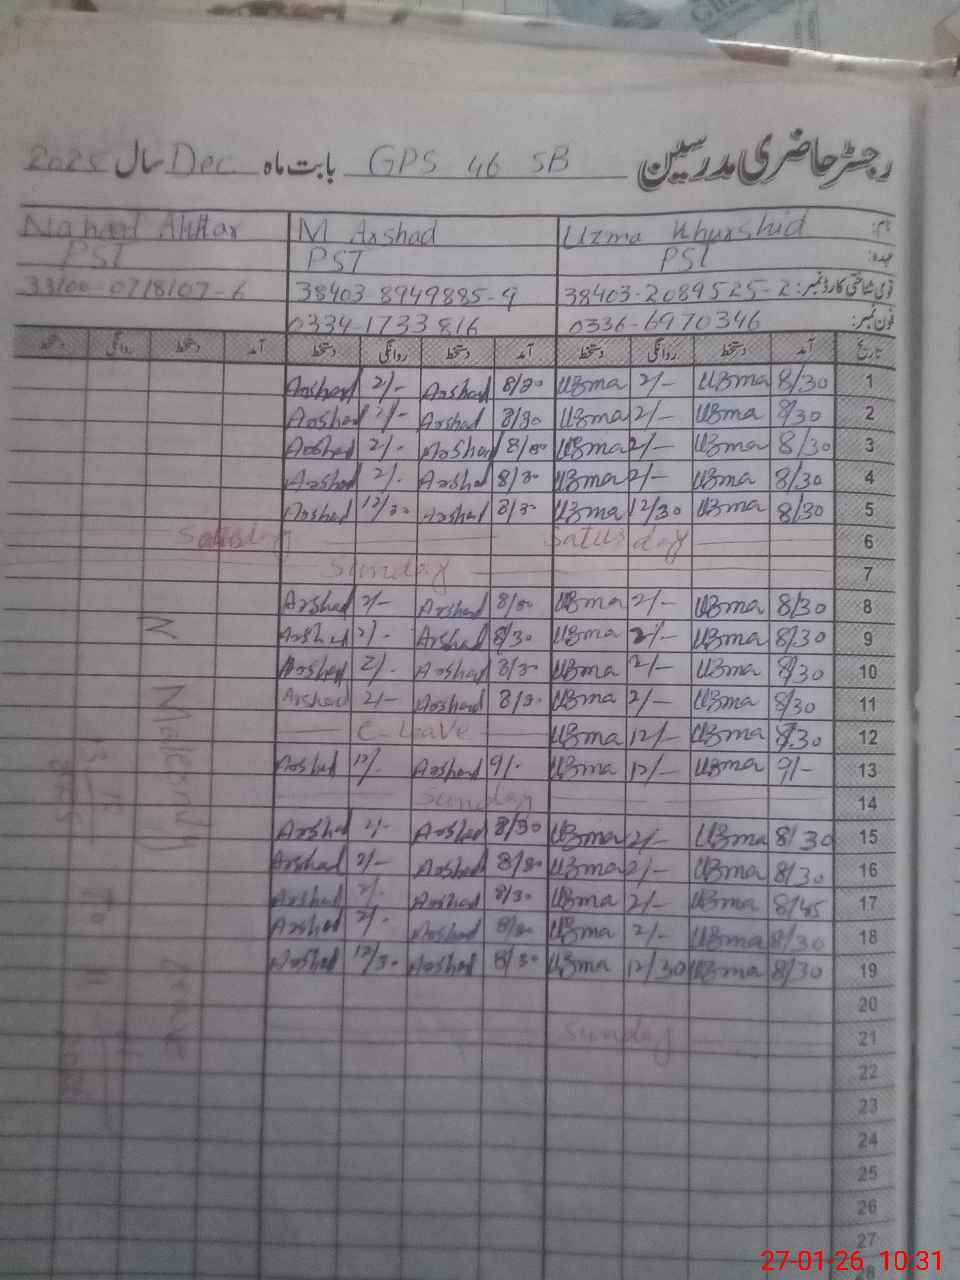 رجسٹر حاضری مدرسین GPS 46 SB بابت ماہ Dec سال 2025
نام: Uzma Khurshid M Arshad Nahand Akhtar
عہدہ: PST PST PST
قومی شناختی کارڈ نمبر: 38403-2084525-2 38403-8949885-9
فون نمبر: 0336-6970346 0334-1733816
تاریخ آمد دستخط روانگی دستخط آمد دستخط روانگی دستخط آمد دستخط روانگی دستخط
1 8/30 Uzma 2/- Uzma 8/30 Arshad 2/- Arshad
2 8/30 Uzma 2/- Uzma 8/30 Arshad 2/- Arshad
3 8/30 Uzma 2/- Uzma Arshad 2/- Arshad
4 8/30 Uzma 2/- Uzma 8/30 Arshad 2/- Arshad
5 8/30 Uzma 12/30 Uzma 8/30 Arshad 12/30 Arshad
6 Saturday Saturday
7 Sunday
8 8/30 Uzma 2/- Uzma Arshad 2/- Arshad
9 8/30 Uzma 2/- Uzma 8/30 Arshad 2/- Arshad
10 8/30 Uzma 2/- Uzma 8/30 Arshad 2/- Arshad
11 8/30 Uzma 2/- Uzma 8/30 Arshad 2/- Arshad
12 8/30 Uzma 12/- Uzma C-Leave
13 9/- Uzma 12/- Uzma 9/- Arshad 12/- Arshad
14 Sunday
15 8/30 Uzma 2/- Uzma 8/30 Arshad 2/- Arshad
16 8/30 Uzma 2/- Uzma 8/30 Arshad 2/- Arshad
17 8/45 Uzma 2/- Uzma 8/30 Arshad 2/- Arshad
18 8/30 Uzma 2/- Uzma 8/30 Arshad 2/- Arshad
19 8/30 Uzma 12/30 Uzma 8/30 Arshad 12/30 Arshad
20
21 Sunday
22
23
24
25
26
27
28
Maternity Leave
To
27-01-26 10:31